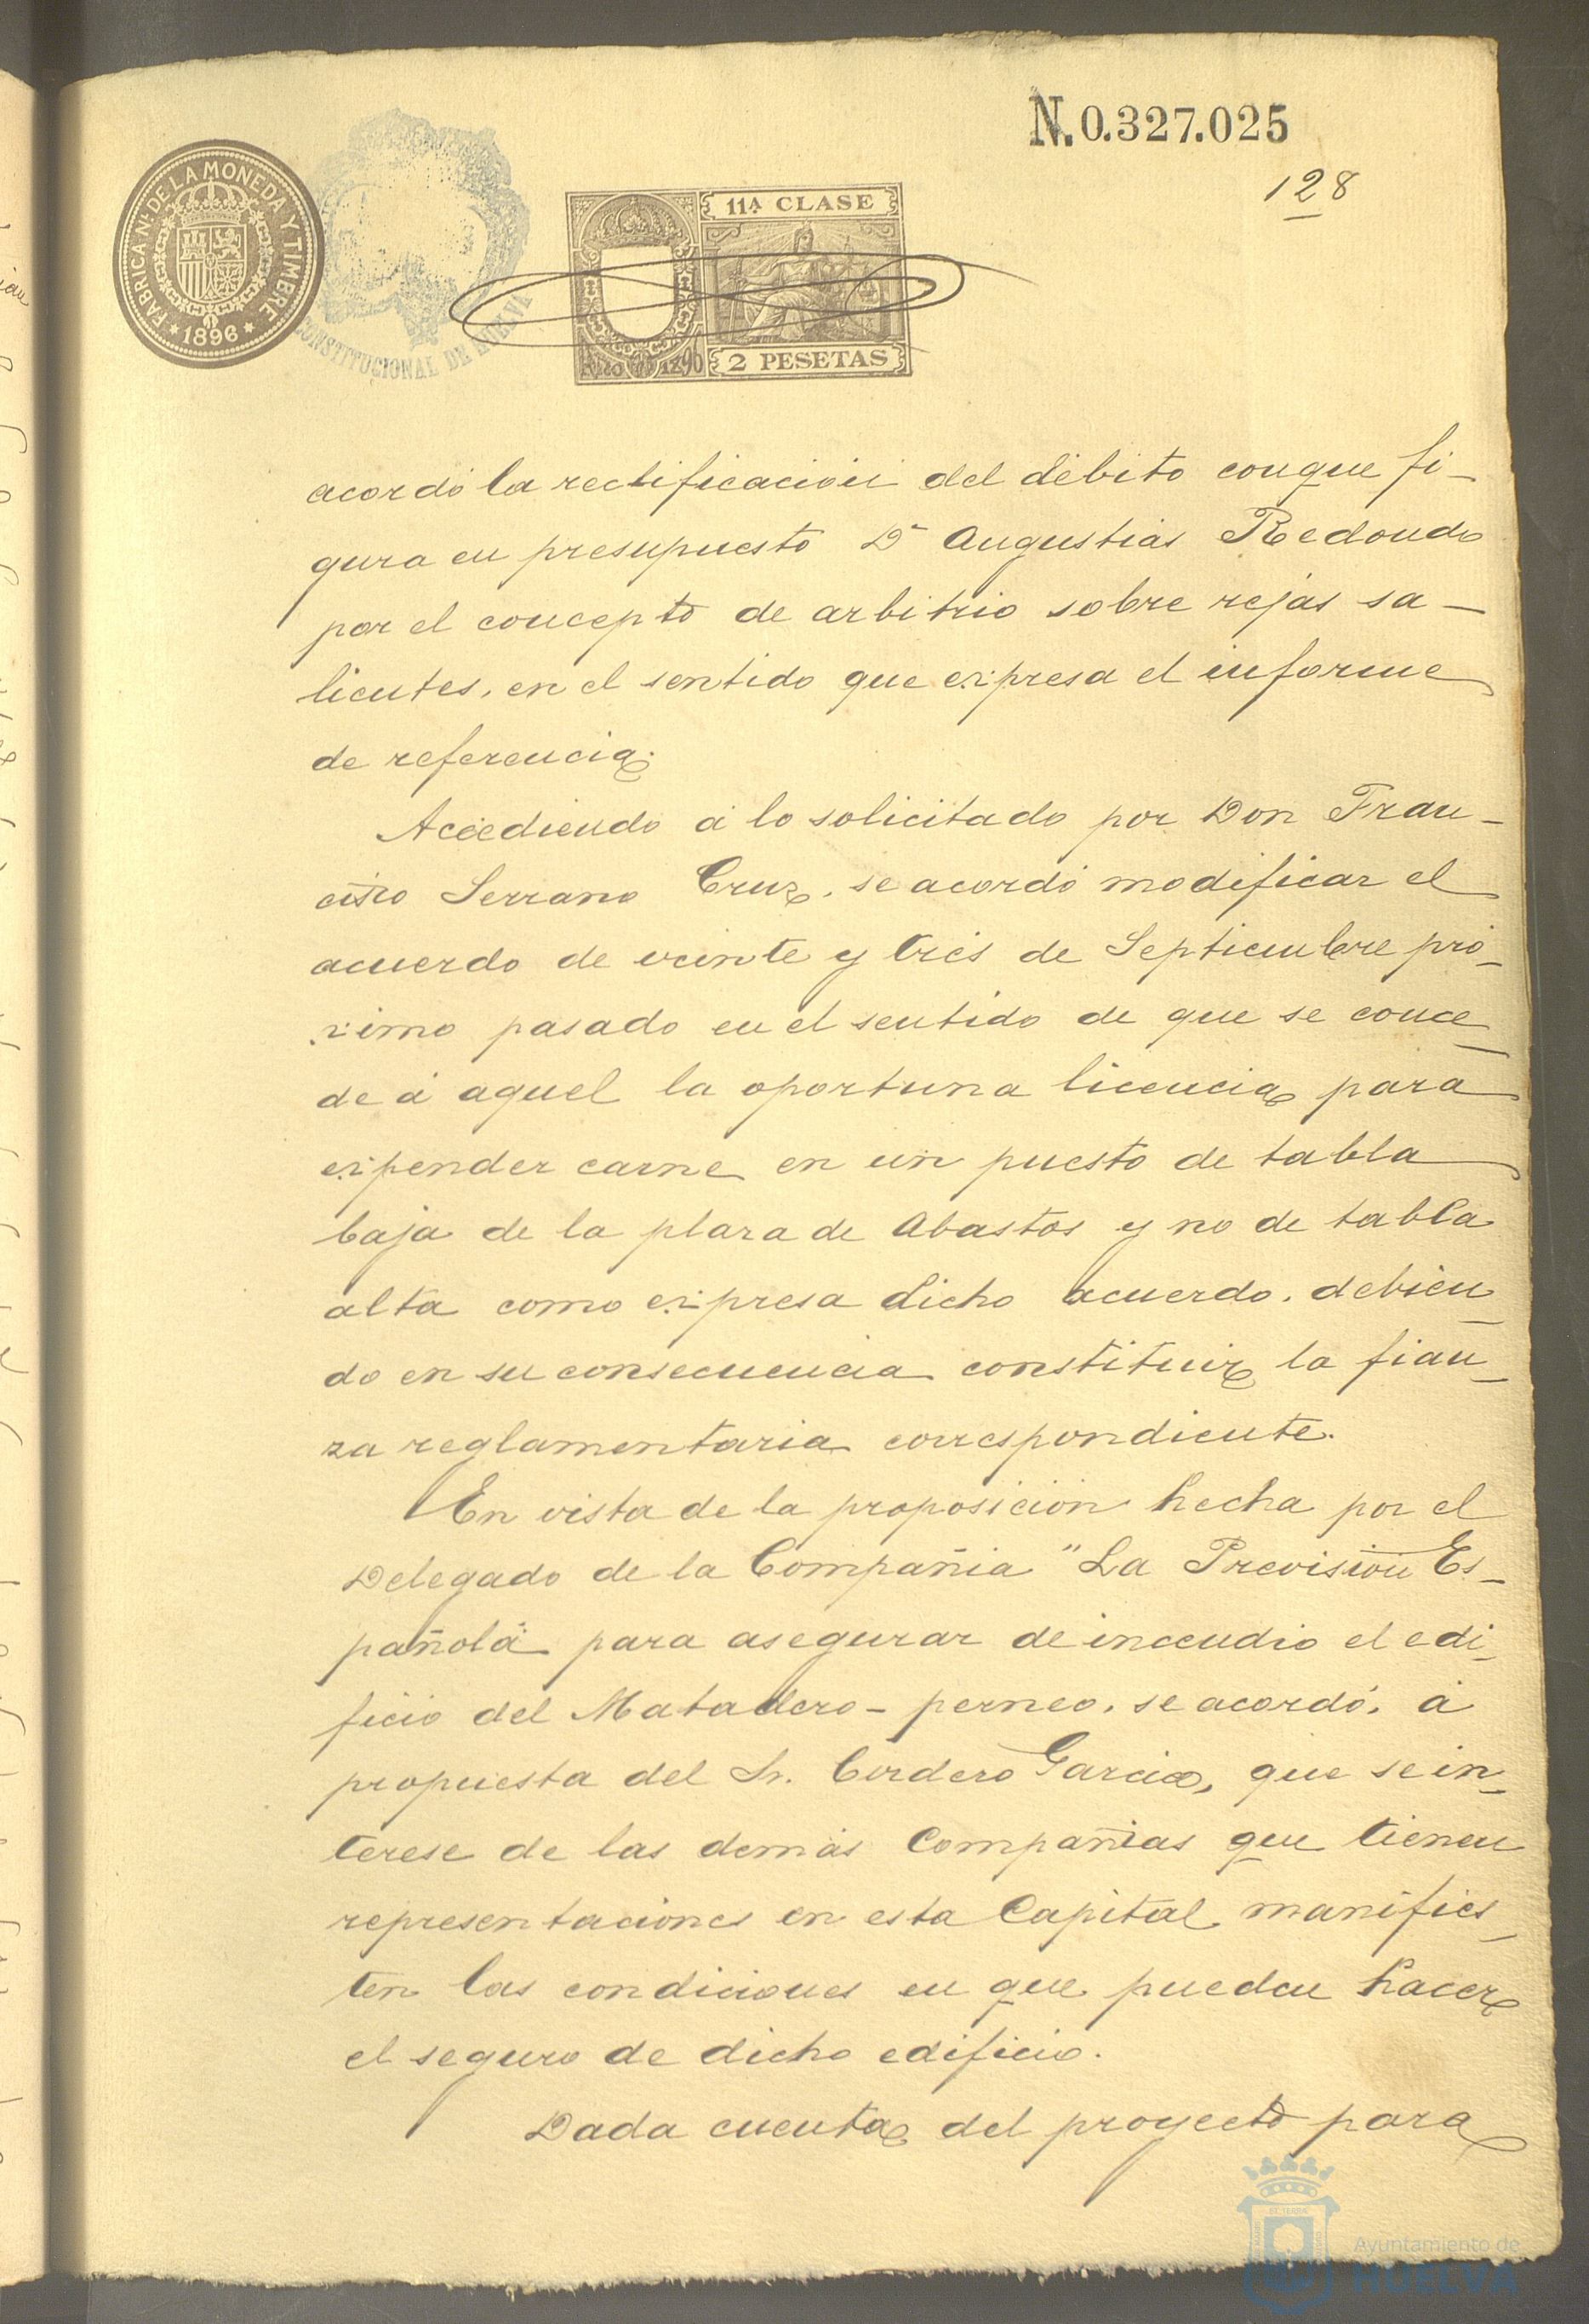 N. 0.327.025
128
FABRICA NL. DE LA MONEDA Y TIMBRE
* 1896 *
CONSTITUCIONAL DE HUELVA
11ª CLASE
2 PESETAS
acordó la rectificación del débito con que fi-
gura en presupuesto Dª Augustias Redondo
por el concepto de arbitrio sobre rejas sa-
lientes, en el sentido que expresa el informe
de referencia.
Accediendo á lo solicitado por Don Fran-
cisco Serrano Cruz, se acordó modificar el
acuerdo de veinte y tres de Septiembre pró-
ximo pasado en el sentido de que se conce-
de á aquel la oportuna licencia para
expender carne en un puesto de tabla
baja de la plaza de Abastos y no de tabla
alta como expresa dicho acuerdo, debien-
do en su consecuencia constituir la fian-
za reglamentaria correspondiente.
En vista de la proposición hecha por el
Delegado de la Compañia "La Previsión Es-
pañola" para asegurar de incendio el edi-
ficio del Matadero-perneo, se acordó, á
propuesta del Sr. Cordero Garcia, que se in-
terese de las demás Compañias que tienen
representaciones en esta Capital manifies-
ten las condiciones en que puedan hacer
el seguro de dicho edificio.
Dada cuenta del proyecto para
Ayuntamiento de
HUELVA